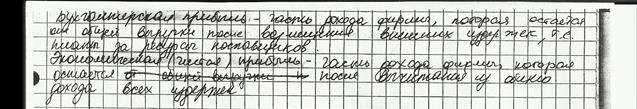 Бухгалтерская прибыль - часть дохода фирмы, которая остается
от общей выручки после возмещения внешних издержек, т.е.
платы за ресурсы поставщиков.
Экономическая (чистая) прибыль - часть дохода фирмы, которая
остается от общей выручки и после вычитания из общего
дохода всех издержек